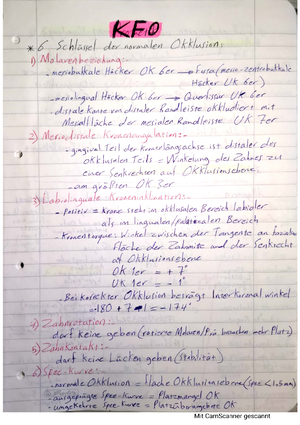 KFO
* 6 Schlüssel der normalen Okklusion:
1) Molarenbeziehung:-
- mesiobukkale Höcker OK 6er → Fissur (mesio-zentrobukkale
Höcker UK 6er)
- mesiolingual Höcker OK 6er → Querfissur UK 6er
- distale Kante von distaler Randleiste okkludiert mit
Mesialfläche der mesialen Randleiste UK 7er
2) Mesiodistale Kronenangulation:-
- gingival Teil der Kronenlängsachse ist distaler des
okklusalen Teils = Winkelung des Zahnes zu
einer Senkrechten auf Okklusionsebene.
- am größten OK 3er
3) Labiolinguale Kroneninklination:-
- Positiv = Krone steht im okklusalen Bereich labialer
als im lingualen/ Bereich
- Kronentorque: Winkel zwischen der Tangente an
Fläche der Zahnmitte und der Senkrecht
of Okklusionsebene
OK 1er = + 7°
UK 1er = - 1°
- Bei korrekter Okklusion beträgt Interkoronal winkel
-180 + 7 - 1 = -174°
4) Zahnrotation:-
darf keine geben (rotierte Molaren/Prä brauchen mehr Platz)
5) Zahnkontakt:-
darf keine Lücken geben (Stabilität)
6) Spee-Kurve:-
- normale Okklusion = flache Okklusionsebene (Spee < 1,5mm)
- ausgeprägte Spee-Kurve = Platzmangel OK
- umgekehrte Spee-Kurve = Platzüberangebot OK
Mit CamScanner gescannt